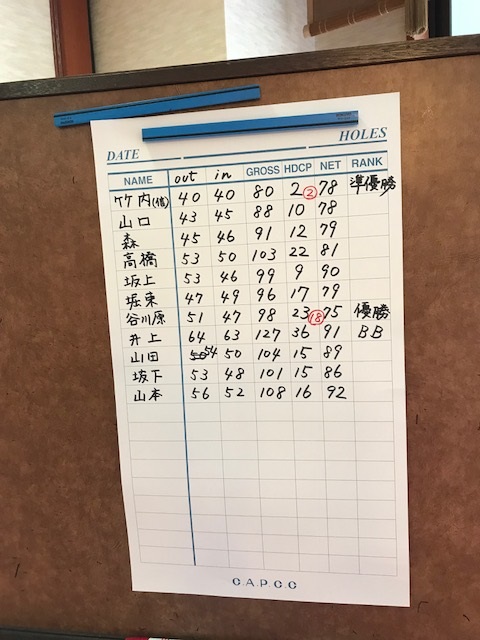 DATE HOLES
NAME out in GROSS HDCP NET RANK
竹内(信) 40 40 80 2 ② 78 準優勝
山口 43 45 88 10 78
森 45 46 91 12 79
高橋 53 50 103 22 81
坂上 53 46 99 9 90
堀東 47 49 96 17 79
谷川原 51 47 98 23 ⑱ 75 優勝
井上 64 63 127 36 91 BB
山田 50 54 50 104 15 89
坂下 53 48 101 15 86
山本 56 52 108 16 92
C.A.P.C.C